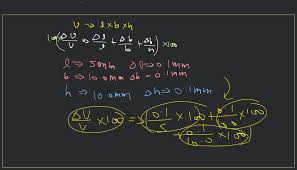 V ⇒ l × b × h
100×(ΔV/V ⇒ Δl/l + Δb/b + Δh/h) × 100
l ⇒ 5.0mm Δl ⇒ 0.1mm
b ⇒ 10.0mm Δb = 0.1mm
h ⇒ 10.0mm Δh ⇒ 0.1mm
ΔV/V × 100 ⇒ 0.1/5 × 100 + 0.1/10.0 × 100
+ 0.1/10.0 × 100